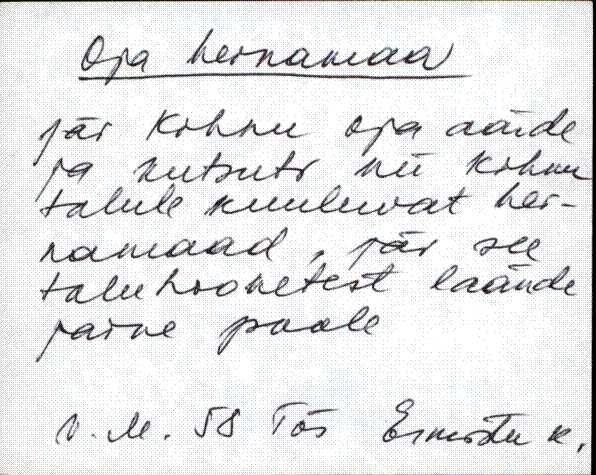 Oja heinamaa
jäi Kohnu oja aäide
ja kutsuti nii Kohnu
talule kuuluvat hei-
namaad, jäi see
taluhoonetest laände
paive poole
V. M. 58 Tõs Ermistu k.